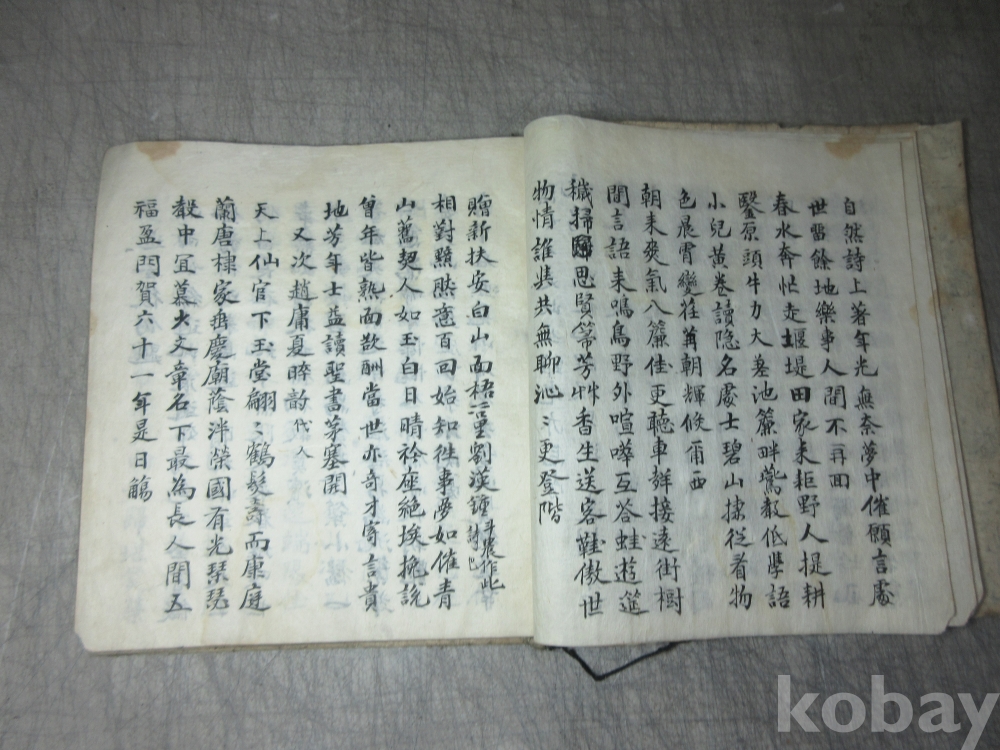 自然詩上著年光無奈夢中催願言處
世留餘地樂事人間不再回
春水奔忙走堰堤田家来耟野人提耕
鑿原頭牛力大墓池簾畔鶯敎低學語
小兒黃卷讀隐名處士碧山捿從看物
色晨霄變莊苒朝輝倏甭西
朝来爽氣入簾佳更聽車聲接遠街樹
間言語来鳴鳥野外喧嘩互答蛙遊進
穢掃思賢等芳艸香生送客鞋傲世
物情誰與共無聊沁〻更登階
贈新扶安白山面梧堂劉漢鐘
相對黯然恋百回始知徃事夢如催青
山舊契人如玉白日晴衿座絶埃挽說
曾年皆熟面欲酬當世亦奇才寄言貴
地芳年士益讀聖書茅塞開
又次趙庸夏晬韵代人
天上仙官下玉堂翩〻鶴髮壽而康庭
蘭唐棣家有慶廟蔭泮榮國有光琹瑟
聲中宜慕大文章名下最為長人間五
福盈門賀六十一年是日觴
kobay